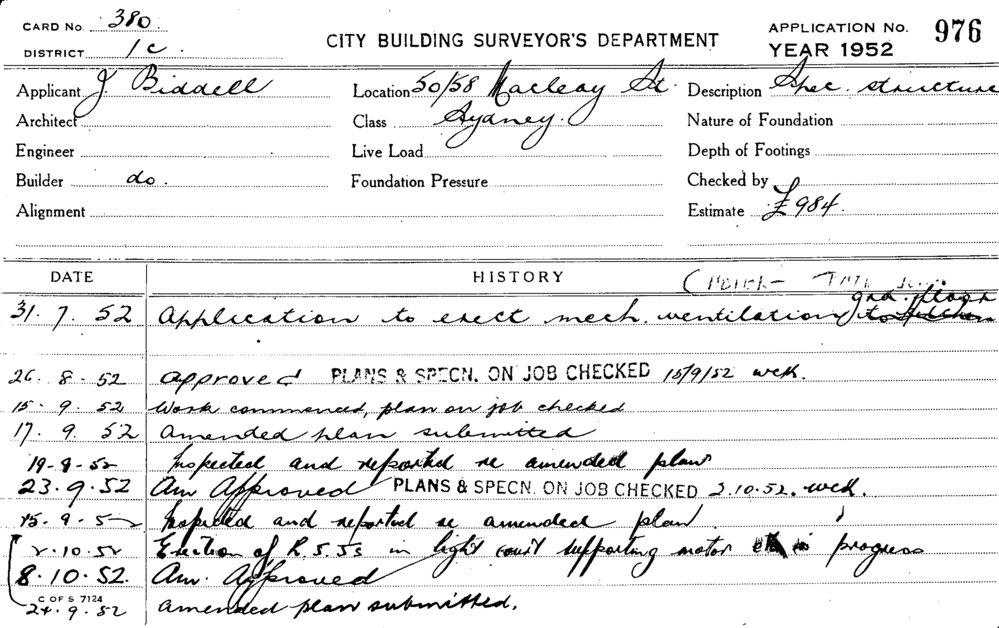 CARD No. 380. CITY BUILDING SURVEYOR'S DEPARTMENT APPLICATION No. 976
DISTRICT 1c. YEAR 1952
Applicant J Biddell Location 50/58 Macleay St. Description Spec. structure
Architect Class Sydney. Nature of Foundation
Engineer Live Load Depth of Footings
Builder do. Foundation Pressure Checked by
Alignment Estimate £984.
DATE HISTORY
31. 7. 52 Application to erect mech. ventilation gnd. floor
26. 8. 52 Approved PLANS & SPECN. ON JOB CHECKED 15/9/52 wck.
15. 9. 52 Work commenced, plan on job checked
17. 9. 52 Amended plan submitted
19-9-52 Inspected and reported re amended plan
23.9.52 Am Approved PLANS & SPECN. ON JOB CHECKED 2.10.52. wck.
25. 9. 52 Inspected and reported re amended plan.
2.10.52 Erection of R.S.Js in light court supporting motor in progress
8.10.52. Am. Approved
C OF S 7124
24.9.52 amended plan submitted.